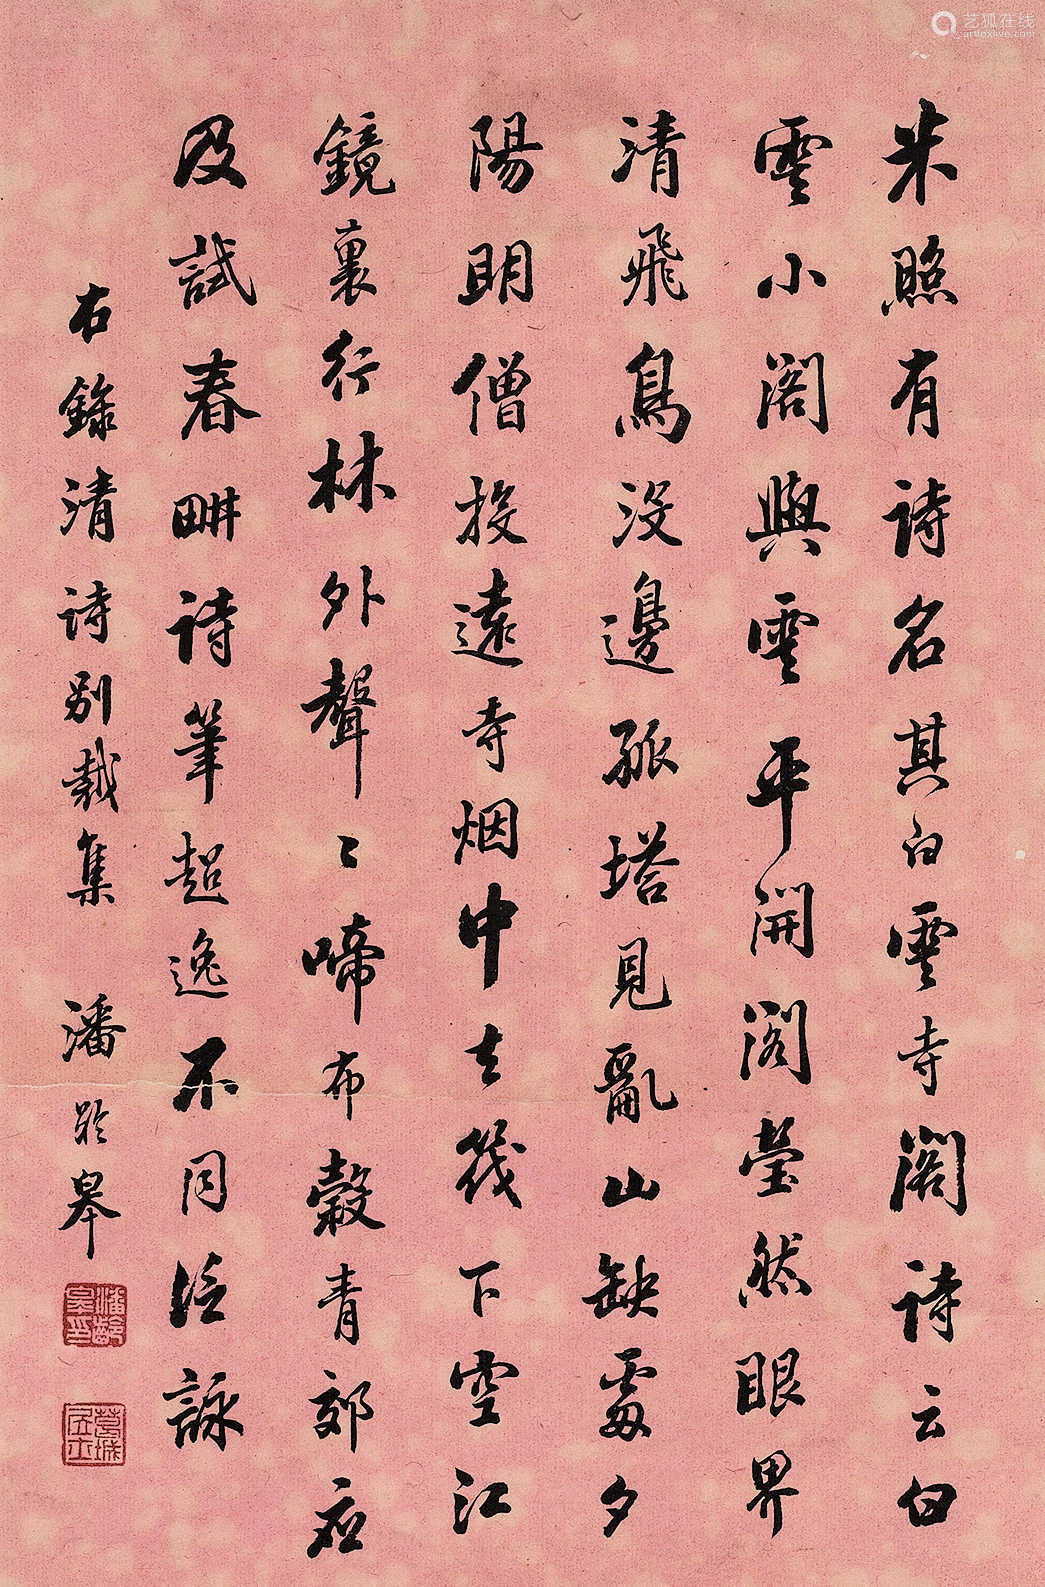 米照有詩名其白雲寺閣詩云白
雲小閣與雲平開閣瑩然眼界
清飛鳥没邊孤塔見亂山缺處夕
陽明僧投遠寺烟中去筏下空江
鏡裏行林外聲〻啼布穀青郊應
及試春畊詩筆超逸不同泛詠
右錄清詩别裁集 潘齡皋
潘齡皋印
葛城居士
艺狐在线
artfoxlive.com